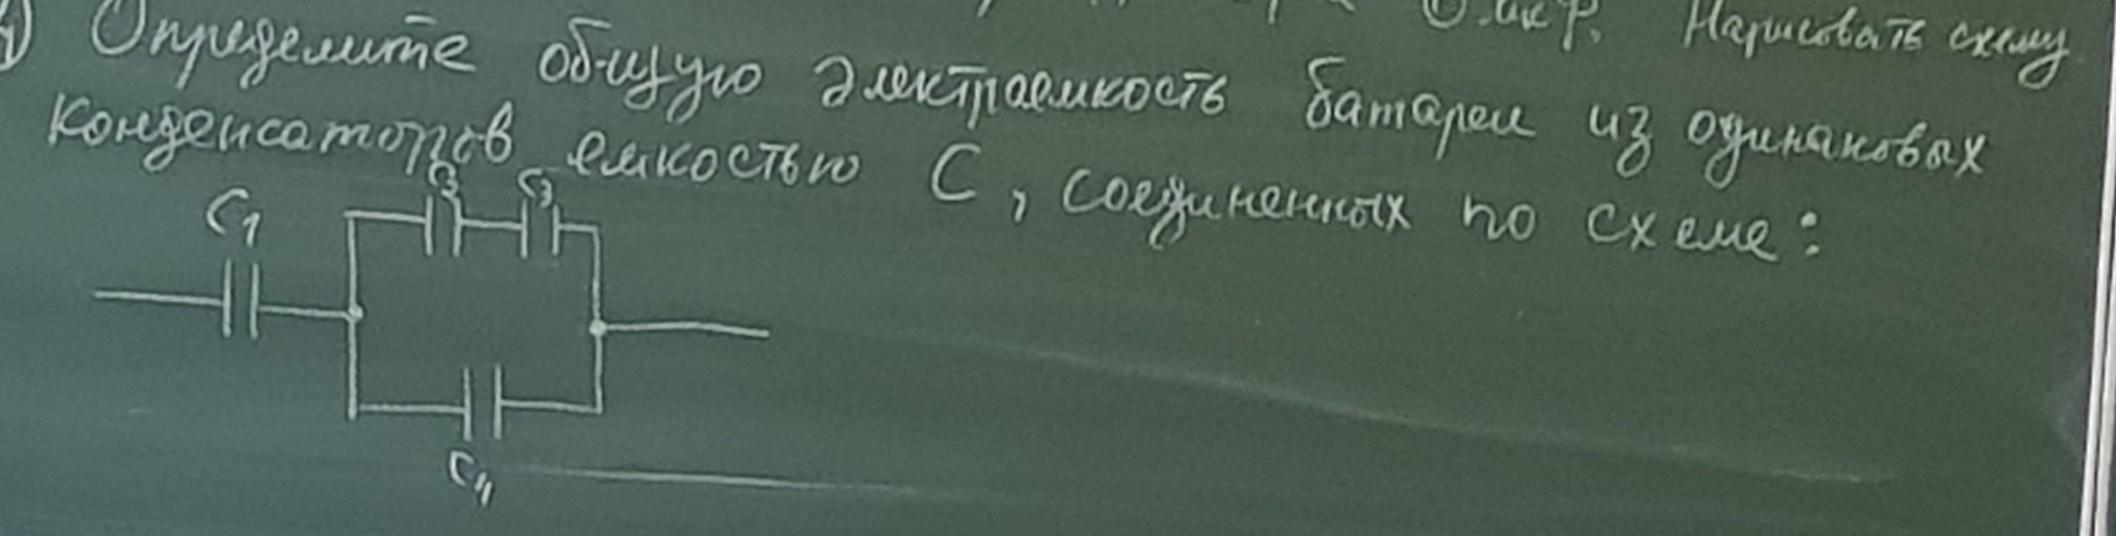 Нарисовать схему
Определите общую электроемкость батареи из одинаковых
конденсаторов емкостью C, соединенных по схеме:
C1 C2 C3
C4